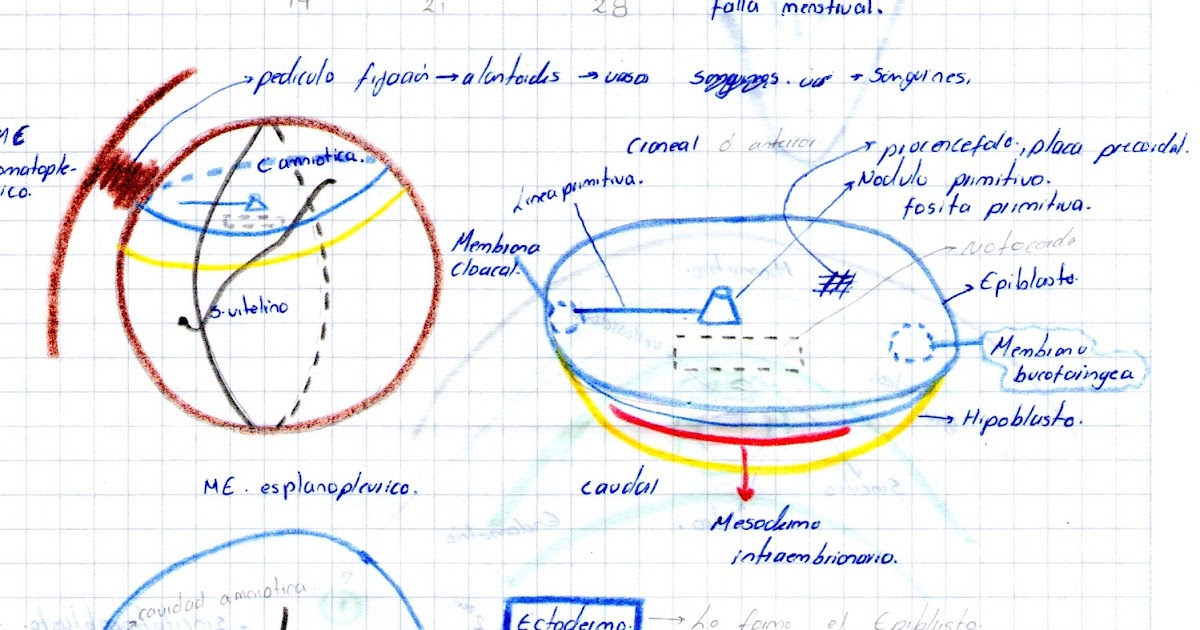 14 21 28
falla menstrual.
pediculo fijación → alantoides → vaso → Sanguines.
ME
omatople-
ico.
C amniotica.
S. vitelino
ME. esplanopleurico.
Craneal ó anterior
Linea primitiva.
procencefalo, placa precordal.
Nodulo primitivo.
fosita primitiva.
Notocorda
Membrana
Cloacal.
Epiblasto.
Membrana
bucofaingea
Hipoblasto.
caudal
Mesodermo
intraembrionario.
cavidad amniotica
Ectodermo. → Lo forma el Epiblasto.